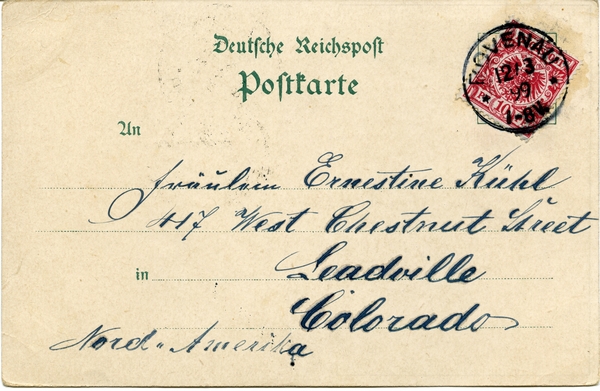 Deutsche Reichspost
Postkarte
12/3
99
1-8N
10
An
Fräulein Ernestine Kühl
417 West Chestnut Street
in Leadville
Colorado
Nord-Amerika